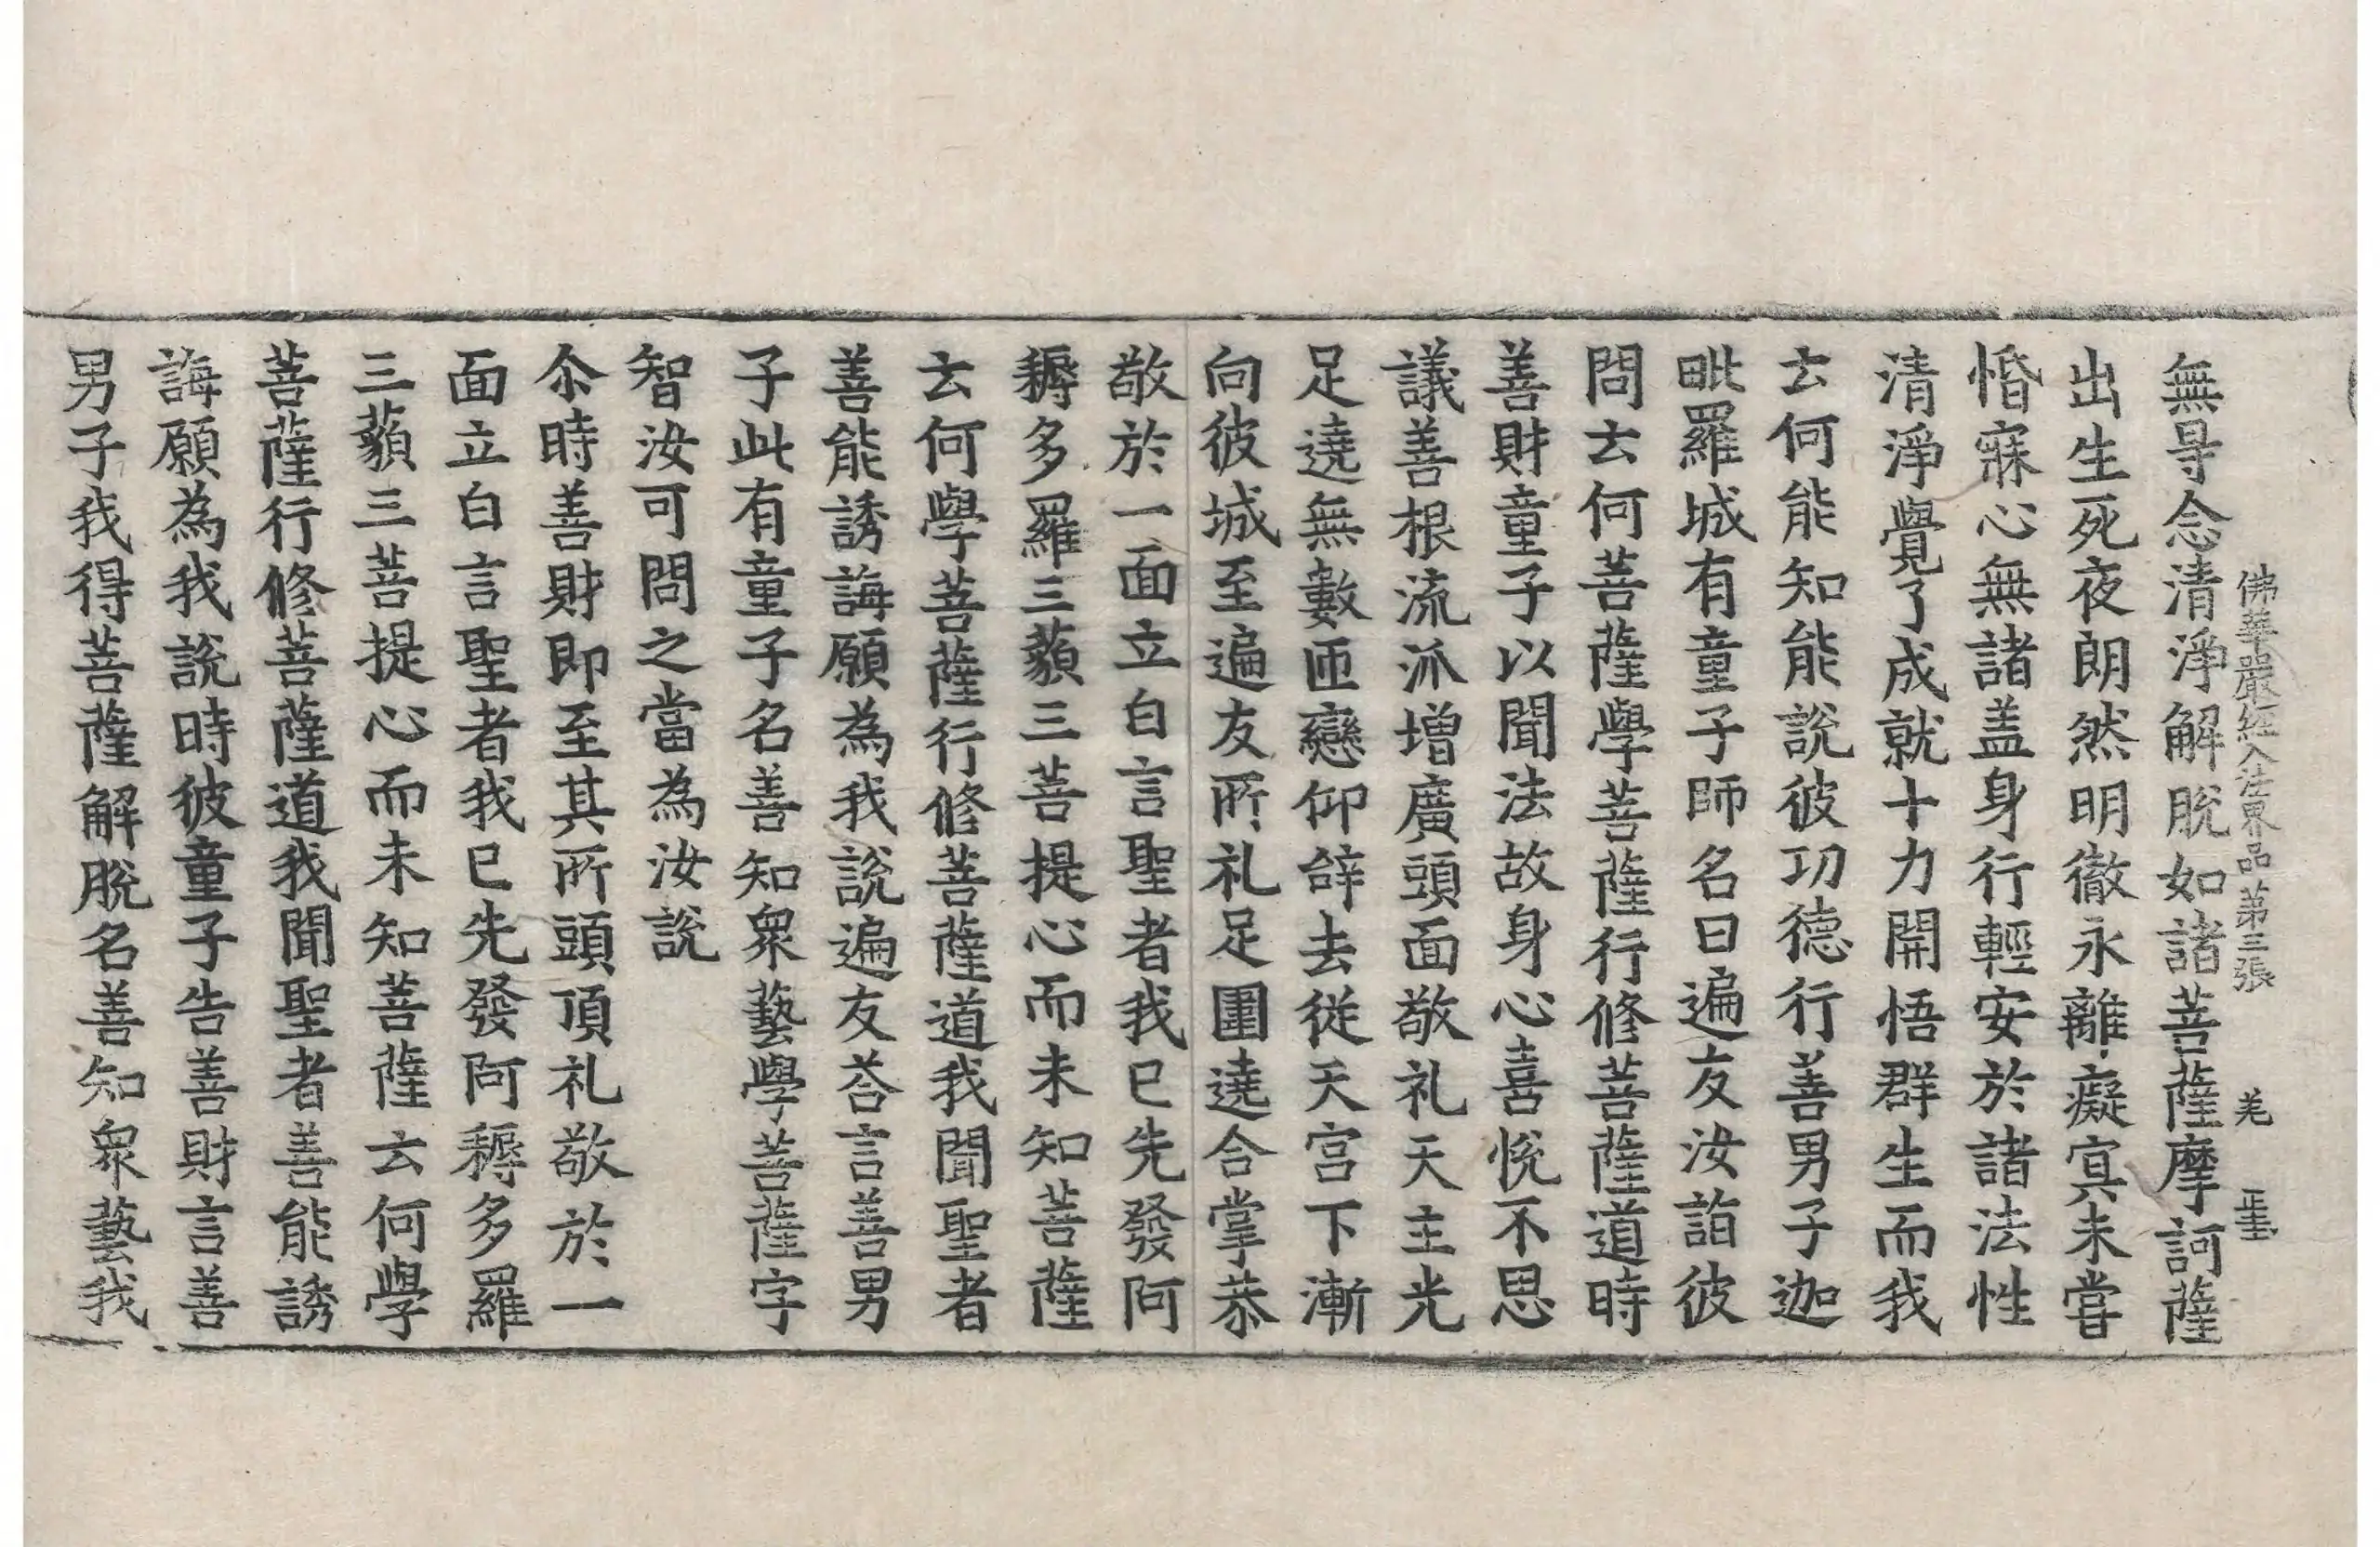 佛華嚴經入法界品第三張　羌
無㝵念清淨解脫如諸菩薩摩訶薩
出生死夜朗然明徹永離癡㝠未嘗
惛寐心無諸盖身行輕安於諸法性
清淨覺了成就十力開悟群生而我
云何能知能說彼功德行善男子迦
毗羅城有童子師名曰遍友汝詣彼
問云何菩薩學菩薩行修菩薩道時
善財童子以聞法故身心喜悅不思
議善根流派增廣頭面敬礼天主光
足遶無數匝戀仰辝去從天宮下漸
向彼城至遍友所礼足圍遶合掌恭
敬於一面立白言聖者我已先發阿
耨多羅三藐三菩提心而未知菩薩
云何學菩薩行修菩薩道我聞聖者
善能誘誨願為我說遍友荅言善男
子此有童子名善知衆藝學菩薩字
智汝可問之當為汝說
尒時善財即至其所頭頂礼敬於一
面立白言聖者我已先發阿耨多羅
三藐三菩提心而未知菩薩云何學
菩薩行修菩薩道我聞聖者善能誘
誨願為我說時彼童子告善財言善
男子我得菩薩解脫名善知衆藝我